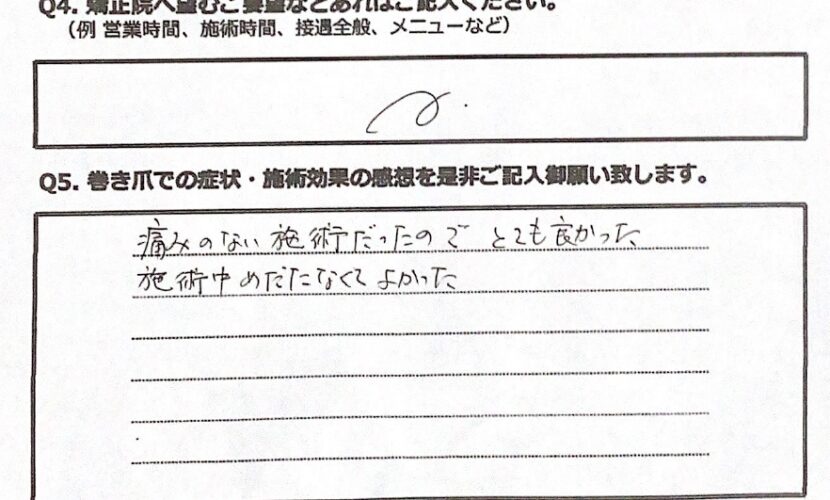 Q4. 矯正院へ望むご要望などあればご記入ください。
（例 営業時間、施術時間、接遇全般、メニューなど）
Q5. 巻き爪での症状・施術効果の感想を是非ご記入御願い致します。
痛みのない施術だったので とても良かった
施術中めだたなくてよかった